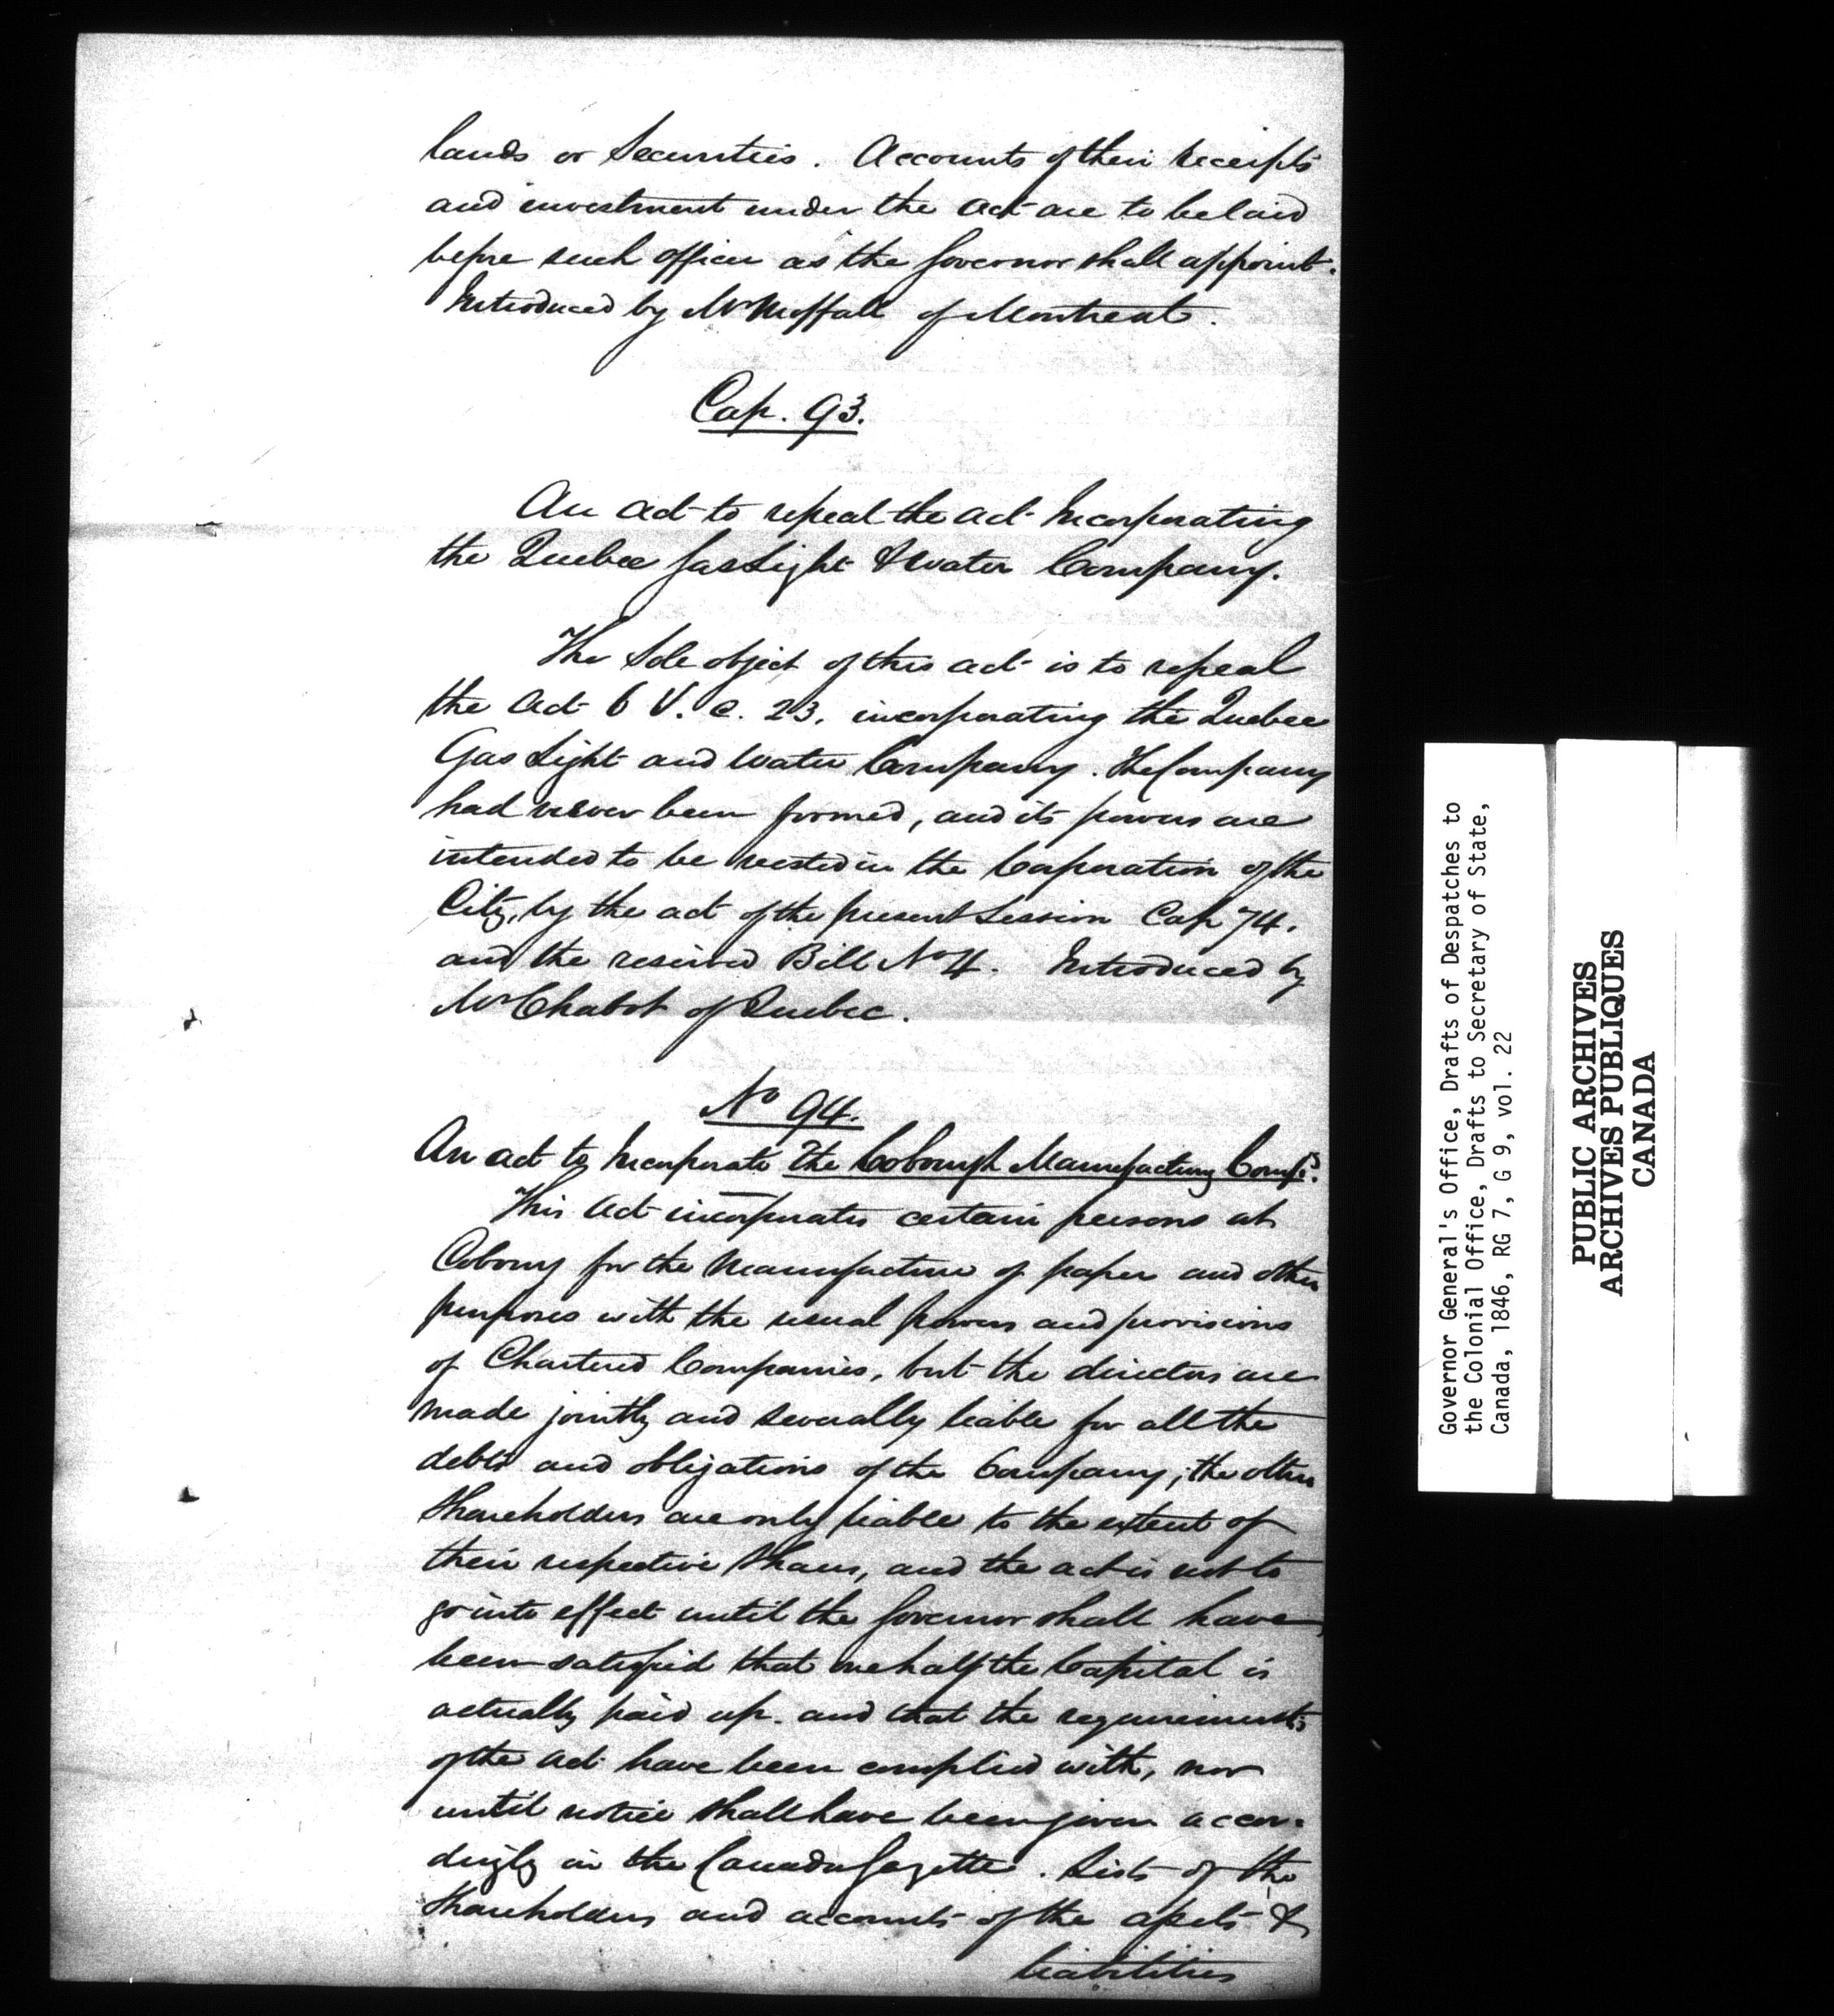 lands or Securities. Accounts of their receipts
and investment under the Act are to be laid
before such officer as the Governor shall appoint.
Introduced by Mr Moffatt of Montreal.
Cap. 93.
An Act to repeal the Act Incorporating
the Quebec Gas Light & Water Company.
The Sole object of this act is to repeal
the Act 6 V. c. 23. incorporating the Quebec
Gas Light and Water Company. The Company
had never been formed, and its powers are
intended to be vested in the Corporation of the
City, by the act of the present Session Cap 74.
and the reserved Bill No 4. Introduced by
Mr Chabot of Quebec.
No 94.
An act to Incorporate The Cobourgh Manufacturing Compy.
This Act incorporates certain persons at
Cobourg for the Manufacture of paper and other
purposes with the usual powers and provisions
of Chartered Companies, but the directors are
made jointly and severally liable for all the
debts and obligations of the Company; the other
Shareholders are only liable to the extent of
their respective Shares, and the act is not to
go into effect until the Governor shall have
been satisfied that one half the Capital is
actually paid up. and that the requirements
of the Act have been complied with, nor
until notice shall have been given accor-
dingly in the Canada Gazette. Lists of the
Shareholders and accounts of the assets &
liabilities
Governor General's Office, Drafts of Despatches to
the Colonial Office, Drafts to Secretary of State,
Canada, 1846, RG 7, G 9, vol. 22
PUBLIC ARCHIVES
ARCHIVES PUBLIQUES
CANADA